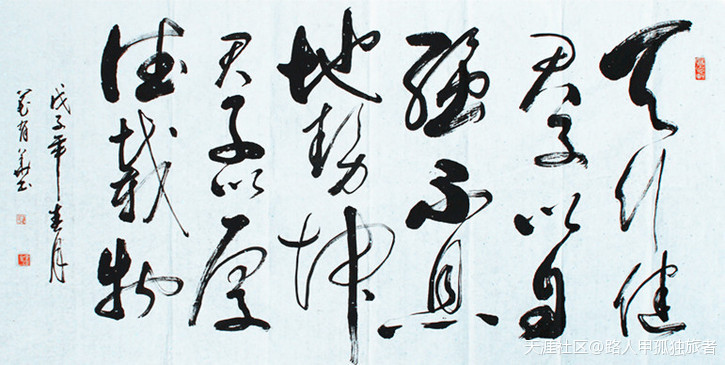 天行健
君子以自
强不息
地势坤
君子以厚
德载物
戊子年春月
天涯社区@路人甲孤独旅者